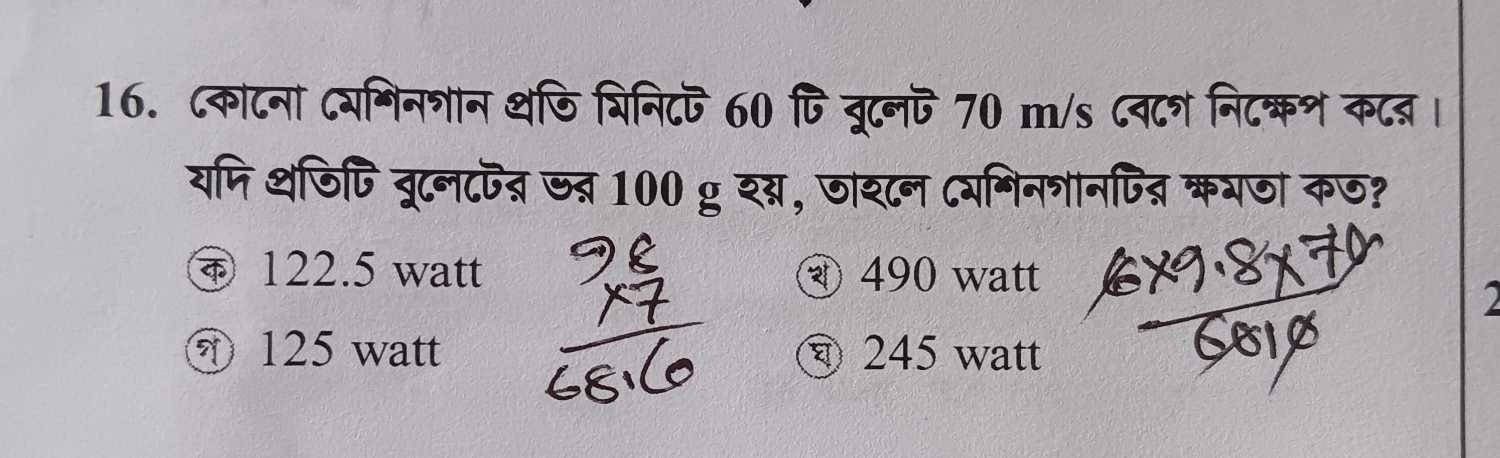 16. কোনো মেশিনগান প্রতি মিনিটে 60 টি বুলেট 70 m/s বেগে নিক্ষেপ করে।
যদি প্রতিটি বুলেটের ভর 100 g হয়, তাহলে মেশিনগানটির ক্ষমতা কত?
ক 122.5 watt খ 490 watt
গ 125 watt ঘ 245 watt
×7
68.6
6×9.8×70
2